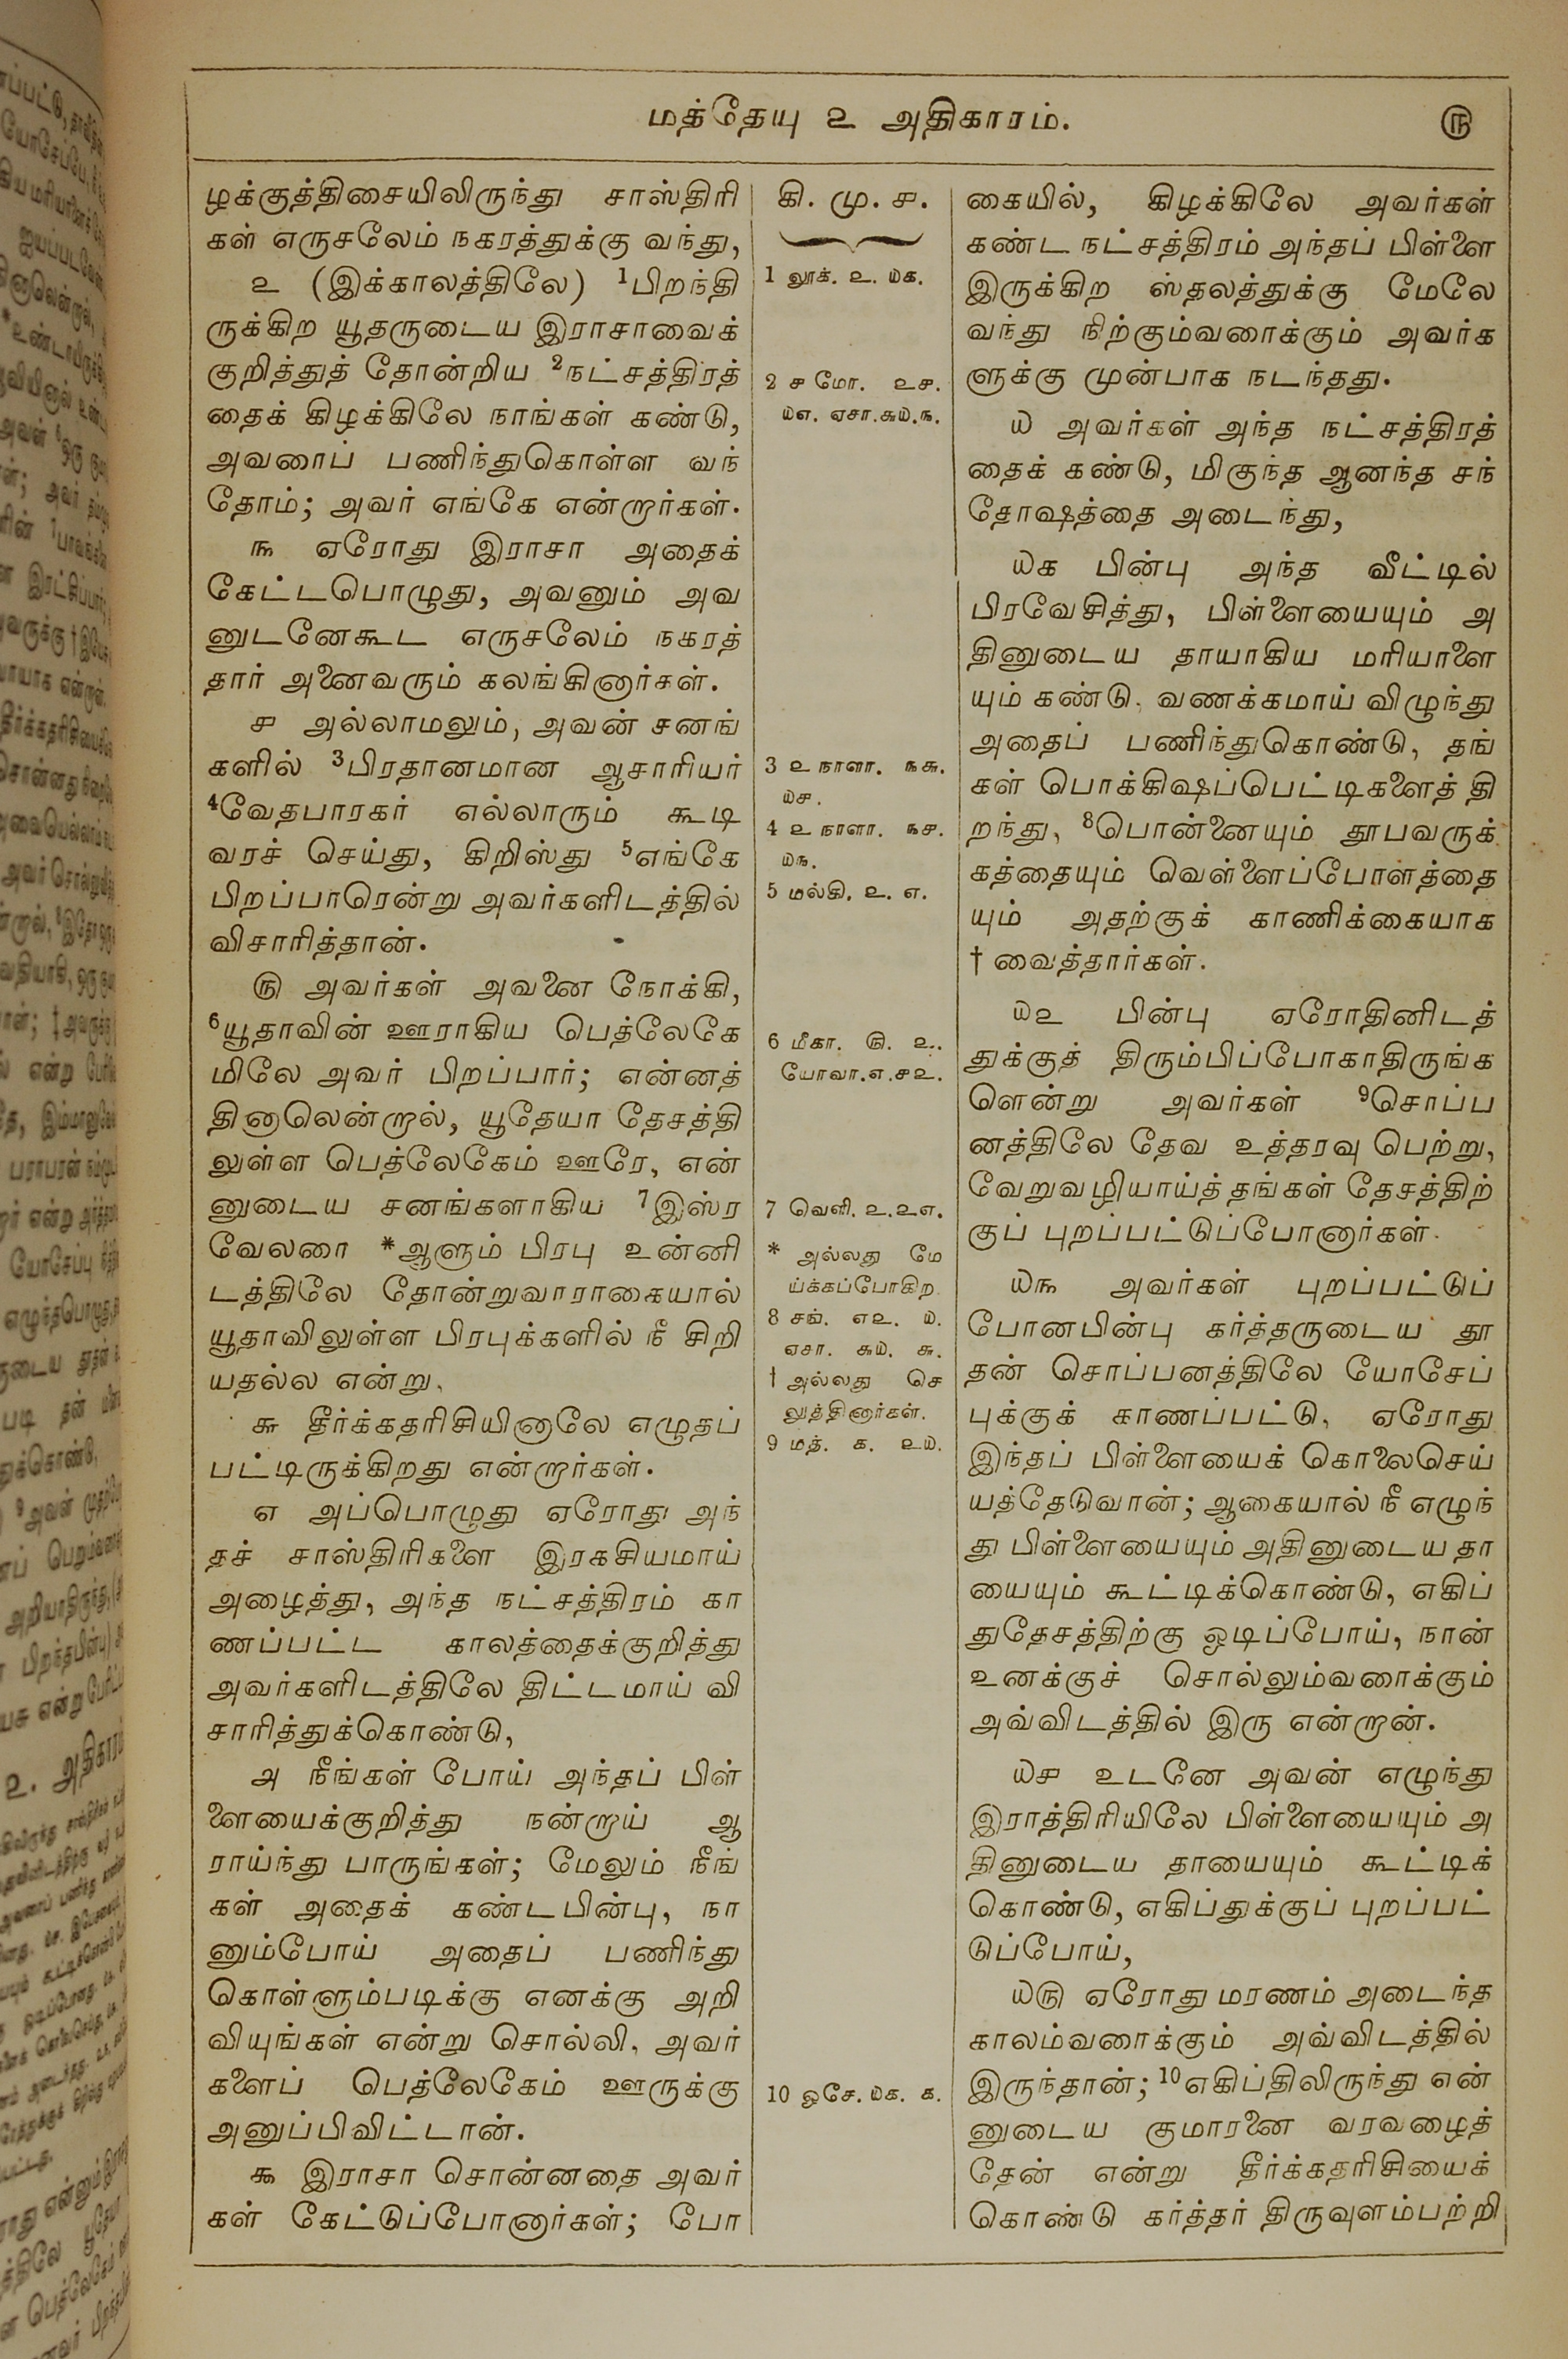 மத்தேயு ௨ அதிகாரம்.
௫
ழக்குத்திசையிலிருந்து சாஸ்திரி
கள் எருசலேம் நகரத்துக்கு வந்து,
௨ (இக்காலத்திலே) ¹பிறந்தி
ருக்கிற யூதருடைய இராசாவைக்
குறித்துத் தோன்றிய ²நட்சத்திரத்
தைக் கிழக்கிலே நாங்கள் கண்டு,
அவரைப் பணிந்துகொள்ள வந்
தோம்; அவர் எங்கே என்றார்கள்.
௩ ஏரோது இராசா அதைக்
கேட்டபொழுது, அவனும் அவ
னுடனேகூட எருசலேம் நகரத்
தார் அனைவரும் கலங்கினார்கள்.
௪ அல்லாமலும், அவன் சனங்
களில் ³பிரதானமான ஆசாரியர்
⁴வேதபாரகர் எல்லாரும் கூடி
வரச் செய்து, கிறிஸ்து ⁵எங்கே
பிறப்பாரென்று அவர்களிடத்தில்
விசாரித்தான்.
௫ அவர்கள் அவனை நோக்கி,
⁶யூதாவின் ஊராகிய பெத்லேகே
மிலே அவர் பிறப்பார்; என்னத்
தினாலென்றால், யூதேயா தேசத்தி
லுள்ள பெத்லேகேம் ஊரே, என்
னுடைய சனங்களாகிய ⁷இஸ்ர
வேலரை *ஆளும் பிரபு உன்னி
டத்திலே தோன்றுவாராகையால்
யூதாவிலுள்ள பிரபுக்களில் நீ சிறி
யதல்ல என்று,
௬ தீர்க்கதரிசியினாலே எழுதப்
பட்டிருக்கிறது என்றார்கள்.
௭ அப்பொழுது ஏரோது அந்
தச் சாஸ்திரிகளை இரகசியமாய்
அழைத்து, அந்த நட்சத்திரம் கா
ணப்பட்ட காலத்தைக்குறித்து
அவர்களிடத்திலே திட்டமாய் வி
சாரித்துக்கொண்டு,
௮ நீங்கள் போய் அந்தப் பிள்
ளையைக்குறித்து நன்றாய் ஆ
ராய்ந்து பாருங்கள்; மேலும் நீங்
கள் அதைக் கண்டபின்பு, நா
னும்போய் அதைப் பணிந்து
கொள்ளும்படிக்கு எனக்கு அறி
வியுங்கள் என்று சொல்லி, அவர்
களைப் பெத்லேகேம் ஊருக்கு
அனுப்பிவிட்டான்.
௯ இராசா சொன்னதை அவர்
கள் கேட்டுப்போனார்கள்; போ
கி. மு. ௪.
1 லூக். ௨. ௰௧.
2 ௪ மோ. ௨௪.
௰௭. ஏசா.௬௰.௩.
3 ௨ நாளா. ௩௬.
௰௪.
4 ௨ நாளா. ௩௪.
௰௩.
5 மல்கி. ௨. ௭.
6 மீகா. ௫. ௨.
யோவா.௭.௪௨.
7 வெளி. ௨.௨௭.
* அல்லது மே
ய்க்கப்போகிற
8 சங். ௭௨. ௰.
ஏசா. ௬௰. ௬.
† அல்லது செ
லுத்தினார்கள்.
9 மத். ௧. ௨௰.
10 ஓசே. ௰௧. ௧.
கையில், கிழக்கிலே அவர்கள்
கண்ட நட்சத்திரம் அந்தப் பிள்ளை
இருக்கிற ஸ்தலத்துக்கு மேலே
வந்து நிற்கும்வரைக்கும் அவர்க
ளுக்கு முன்பாக நடந்தது.
௰ அவர்கள் அந்த நட்சத்திரத்
தைக் கண்டு, மிகுந்த ஆனந்த சந்
தோஷத்தை அடைந்து,
௰௧ பின்பு அந்த வீட்டில்
பிரவேசித்து, பிள்ளையையும் அ
தினுடைய தாயாகிய மரியாளை
யும் கண்டு, வணக்கமாய் விழுந்து
அதைப் பணிந்துகொண்டு, தங்
கள் பொக்கிஷப்பெட்டிகளைத் தி
றந்து, ⁸பொன்னையும் தூபவருக்
கத்தையும் வெள்ளைப்போளத்தை
யும் அதற்குக் காணிக்கையாக
† வைத்தார்கள்.
௰௨ பின்பு ஏரோதினிடத்
துக்குத் திரும்பிப்போகாதிருங்க
ளென்று அவர்கள் ⁹சொப்ப
னத்திலே தேவ உத்தரவு பெற்று,
வேறுவழியாய்த் தங்கள் தேசத்திற்
குப் புறப்பட்டுப்போனார்கள்.
௰௩ அவர்கள் புறப்பட்டுப்
போனபின்பு கர்த்தருடைய தூ
தன் சொப்பனத்திலே யோசேப்
புக்குக் காணப்பட்டு, ஏரோது
இந்தப் பிள்ளையைக் கொலைசெய்
யத்தேடுவான்; ஆகையால் நீ எழுந்
து பிள்ளையையும் அதினுடைய தா
யையும் கூட்டிக்கொண்டு, எகிப்
துதேசத்திற்கு ஓடிப்போய், நான்
உனக்குச் சொல்லும்வரைக்கும்
அவ்விடத்தில் இரு என்றான்.
௰௪ உடனே அவன் எழுந்து
இராத்திரியிலே பிள்ளையையும் அ
தினுடைய தாயையும் கூட்டிக்
கொண்டு, எகிப்துக்குப் புறப்பட்
டுப்போய்,
௰௫ ஏரோது மரணம் அடைந்த
காலம்வரைக்கும் அவ்விடத்தில்
இருந்தான்; ¹⁰எகிப்திலிருந்து என்
னுடைய குமாரனை வரவழைத்
தேன் என்று தீர்க்கதரிசியைக்
கொண்டு கர்த்தர் திருவுளம்பற்றி